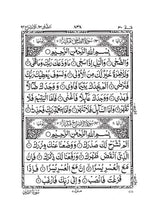 بِسْمِ اللهِ الرَّحْمٰنِ الرَّحِيْمِ
وَالضُّحٰى ۙ وَالَّيْلِ اِذَا سَجٰى ۙ مَا وَدَّعَكَ رَبُّكَ وَمَا
قَلٰى ؕ وَلَلْاٰخِرَةُ خَيْرٌ لَّكَ مِنَ الْاُوْلٰى ؕ وَلَسَوْفَ يُعْطِيْكَ رَبُّكَ
فَتَرْضٰى ؕ اَلَمْ يَجِدْكَ يَتِيْمًا فَاٰوٰى ۪ وَوَجَدَكَ ضَآلًّا
فَهَدٰى ۪ وَوَجَدَكَ عَآئِلًا فَاَغْنٰى ؕ فَاَمَّا الْيَتِيْمَ فَلَا
تَقْهَرْ ؕ وَاَمَّا السَّآئِلَ فَلَا تَنْهَرْ ؕ وَاَمَّا بِنِعْمَةِ رَبِّكَ فَحَدِّثْ
بِسْمِ اللهِ الرَّحْمٰنِ الرَّحِيْمِ
اَلَمْ نَشْرَحْ لَكَ صَدْرَكَ ۙ وَوَضَعْنَا عَنْكَ وِزْرَكَ ۙ
الَّذِيْٓ اَنْقَضَ ظَهْرَكَ ۙ وَرَفَعْنَا لَكَ ذِكْرَكَ ؕ
فَاِنَّ مَعَ الْعُسْرِ يُسْرًا ۙ اِنَّ مَعَ الْعُسْرِ يُسْرًا ؕ
فَاِذَا فَرَغْتَ فَانْصَبْ ۙ وَاِلٰى رَبِّكَ فَارْغَبْ